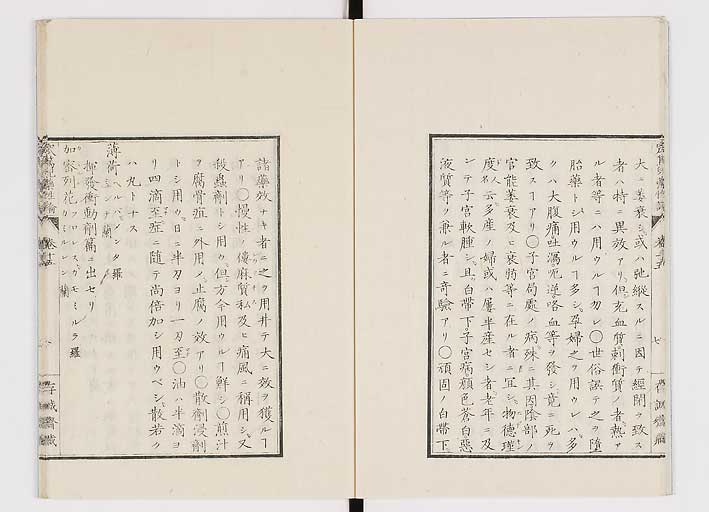 大ニ萎衰シ或ハ弛縦スルニ因テ經閉ヲ致ス
者ハ特ニ異效アリ但充血質刺衝質ノ者熱ア
ル者等ニハ用ウル┐勿レ○世俗誤テ之ヲ墮
胎藥トシ用ウル┐多シ孕婦之ヲ用ウレハ多
クハ大腹痛吐瀉呃逆咯血等ヲ發シ竟ニ死ヲ
致ス┐アリ○子宮局處ノ病殊ニ其因陰部ノ
官能萎衰及ヒ衰弱等ニ在ル者ニ宜シ物德瑾
度名人云多産ノ婦或ハ屢半産セシ者老年ニ及
ンテ子宮軟腫シ且白帶下子宮病顔色蒼白惡
液質等ヲ兼ル者ニ奇驗アリ○頑固ノ白帶下
諸藥效ナキ者ニ之ヲ用井テ大ニ效ヲ獲ル┐
アリ○慢性ノ僂麻質私及ヒ痛風ニ稱用シ又
殺蟲劑トシ用ウ但方今用ウル┐鮮シ○煎汁
ヲ腐骨疽ニ外用メ止腐ノ效アリ○散劑浸劑
トシ用ウ日ニ半刃ヨリ一刃至○油ハ半滴ヨ
リ四滴至症ニ隨テ尚倍加シ用ウベシ散若ク
ハ丸トナス
薄荷 ヘルバ メンタ 羅
 蘭
揮發衝動劑篇ニ出セリ
加密列花 フロレス カモミルラ 羅
 カミルレン 蘭
卷十五
七
存誠齋藏
卷十五
存誠齋藏